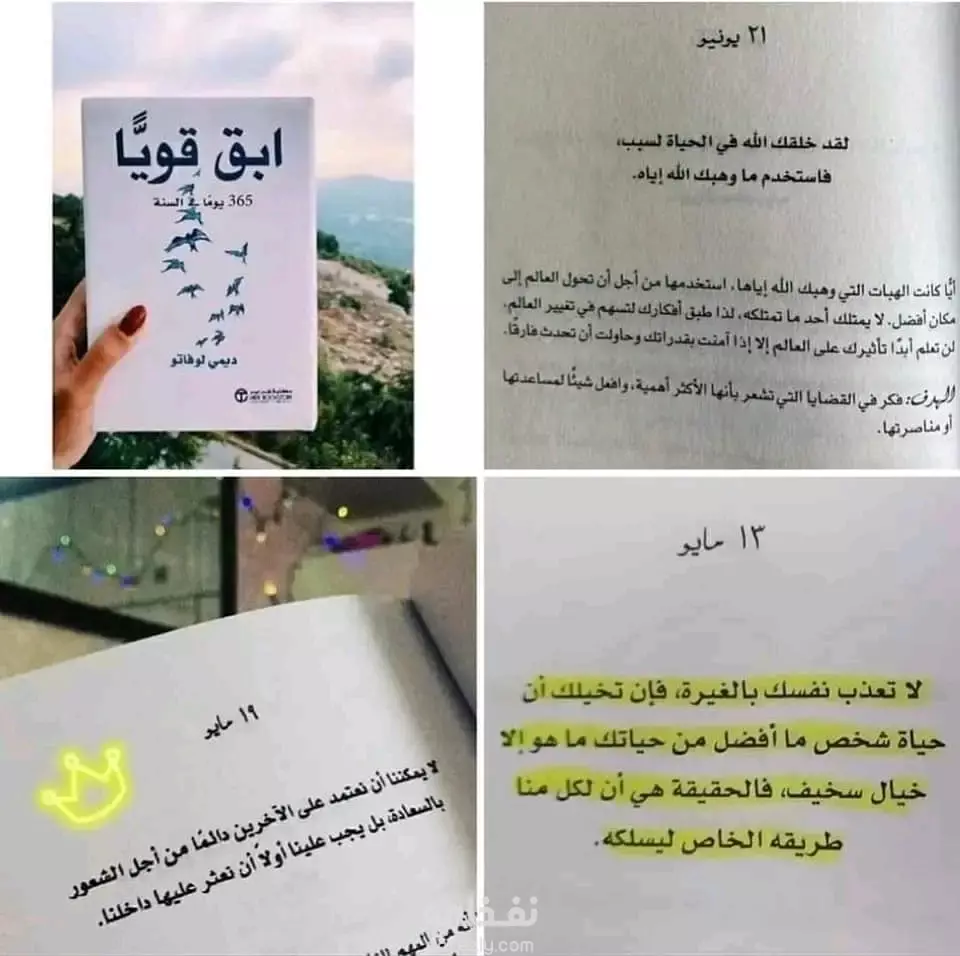 ابق قويًّا
365 يومًا في السنة
ديمي لوفاتو
٢١ يونيو
لقد خلقك الله في الحياة لسبب،
فاستخدم ما وهبك الله إياه.
أيًّا كانت الهبات التي وهبك الله إياها، استخدمها من أجل أن تحول العالم إلى
مكان أفضل. لا يمتلك أحد ما تمتلكه، لذا طبق أفكارك لتسهم في تغيير العالم.
لن تعلم أبدًا تأثيرك على العالم إلا إذا آمنت بقدراتك وحاولت أن تحدث فارقًا.
الهدف: فكر في القضايا التي تشعر بأنها الأكثر أهمية، وافعل شيئًا لمساعدتها
أو مناصرتها.
١٩ مايو
لا يمكننا أن نعتمد على الآخرين دائمًا من أجل الشعور
بالسعادة، بل يجب علينا أولاً أن نعثر عليها داخلنا.
من المهم
١٣ مايو
لا تعذب نفسك بالغيرة، فإن تخيلك أن
حياة شخص ما أفضل من حياتك ما هو إلا
خيال سخيف، فالحقيقة هي أن لكل منا
طريقه الخاص ليسلكه.